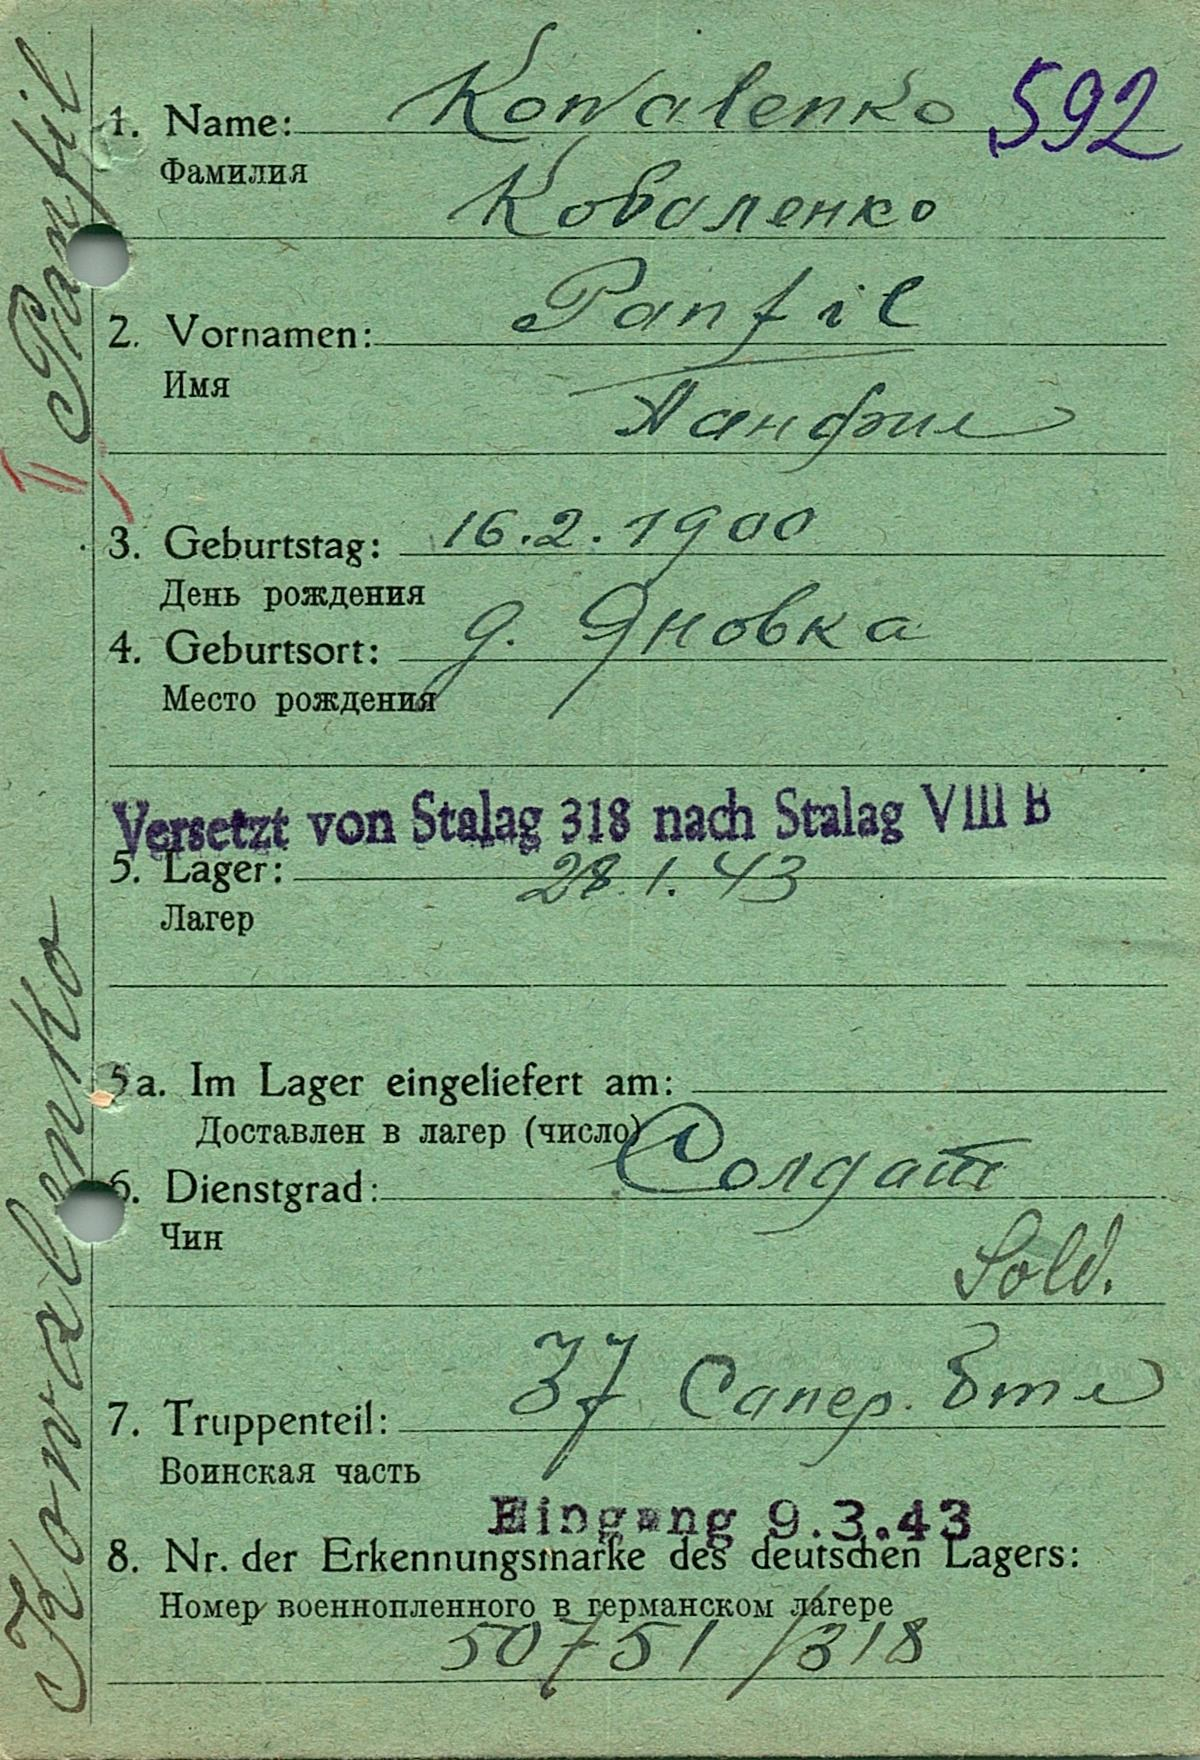 1. Name: Kowalenko 592
Фамилия
Коваленко
2. Vornamen: Panfil
Имя
Панфил
3. Geburtstag: 16.2.1900
День рождения
4. Geburtsort: д. Яновка
Место рождения
Versetzt von Stalag 318 nach Stalag VIII B
5. Lager: 28.1.43
Лагер
5a. Im Lager eingeliefert am:
Доставлен в лагер (число)
6. Dienstgrad: Солдат
Чин
Sold.
7. Truppenteil: 37 Сапер. Бтл
Воинская часть
Eingang 9.3.43
8. Nr. der Erkennungsmarke des deutschen Lagers:
Номер военнопленного в германском лагере
50751/318
Kowalenko Panfil
II